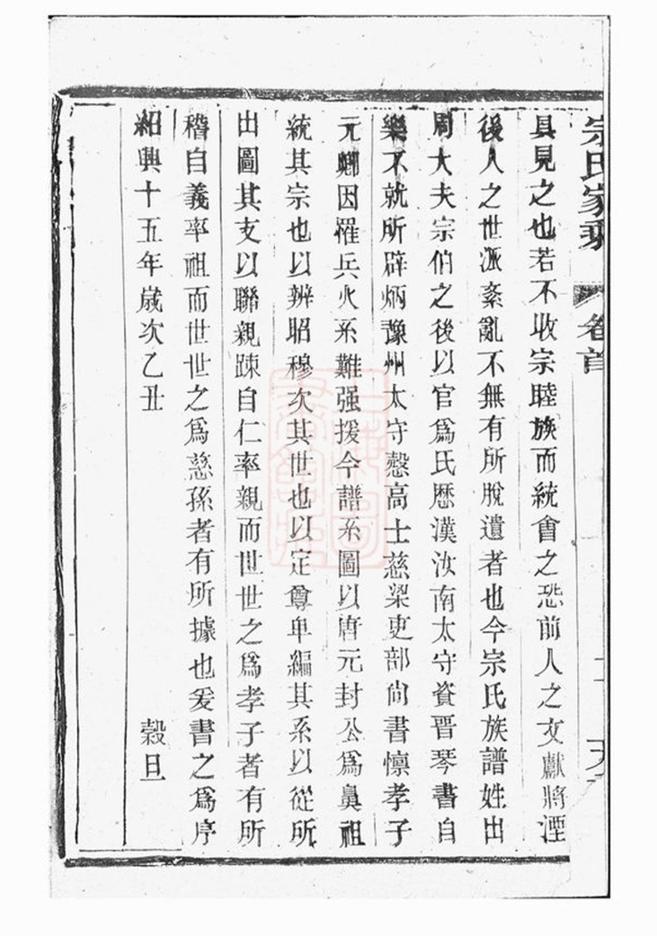 宗氏家乘
卷首
具見之也若不收宗睦族而統會之恐前人之文獻將湮
後人之世派紊亂不無有所脫遺者也今宗氏族譜姓出
周大夫宗伯之後以官爲氏歷漢汝南太守資晉琴書自
樂不就所辟炳豫州太守慤高士慈梁吏部尚書懍孝子
元卿因罹兵火系難强援今譜系圖以唐元封公爲鼻祖
統其宗也以辨昭穆次其世也以定尊卑編其系以從所
出圖其支以聯親踈自仁率親而世世之爲孝子者有所
稽自義率祖而世世之爲慈孫者有所據也爰書之爲序
紹興十五年歲次乙丑 穀旦